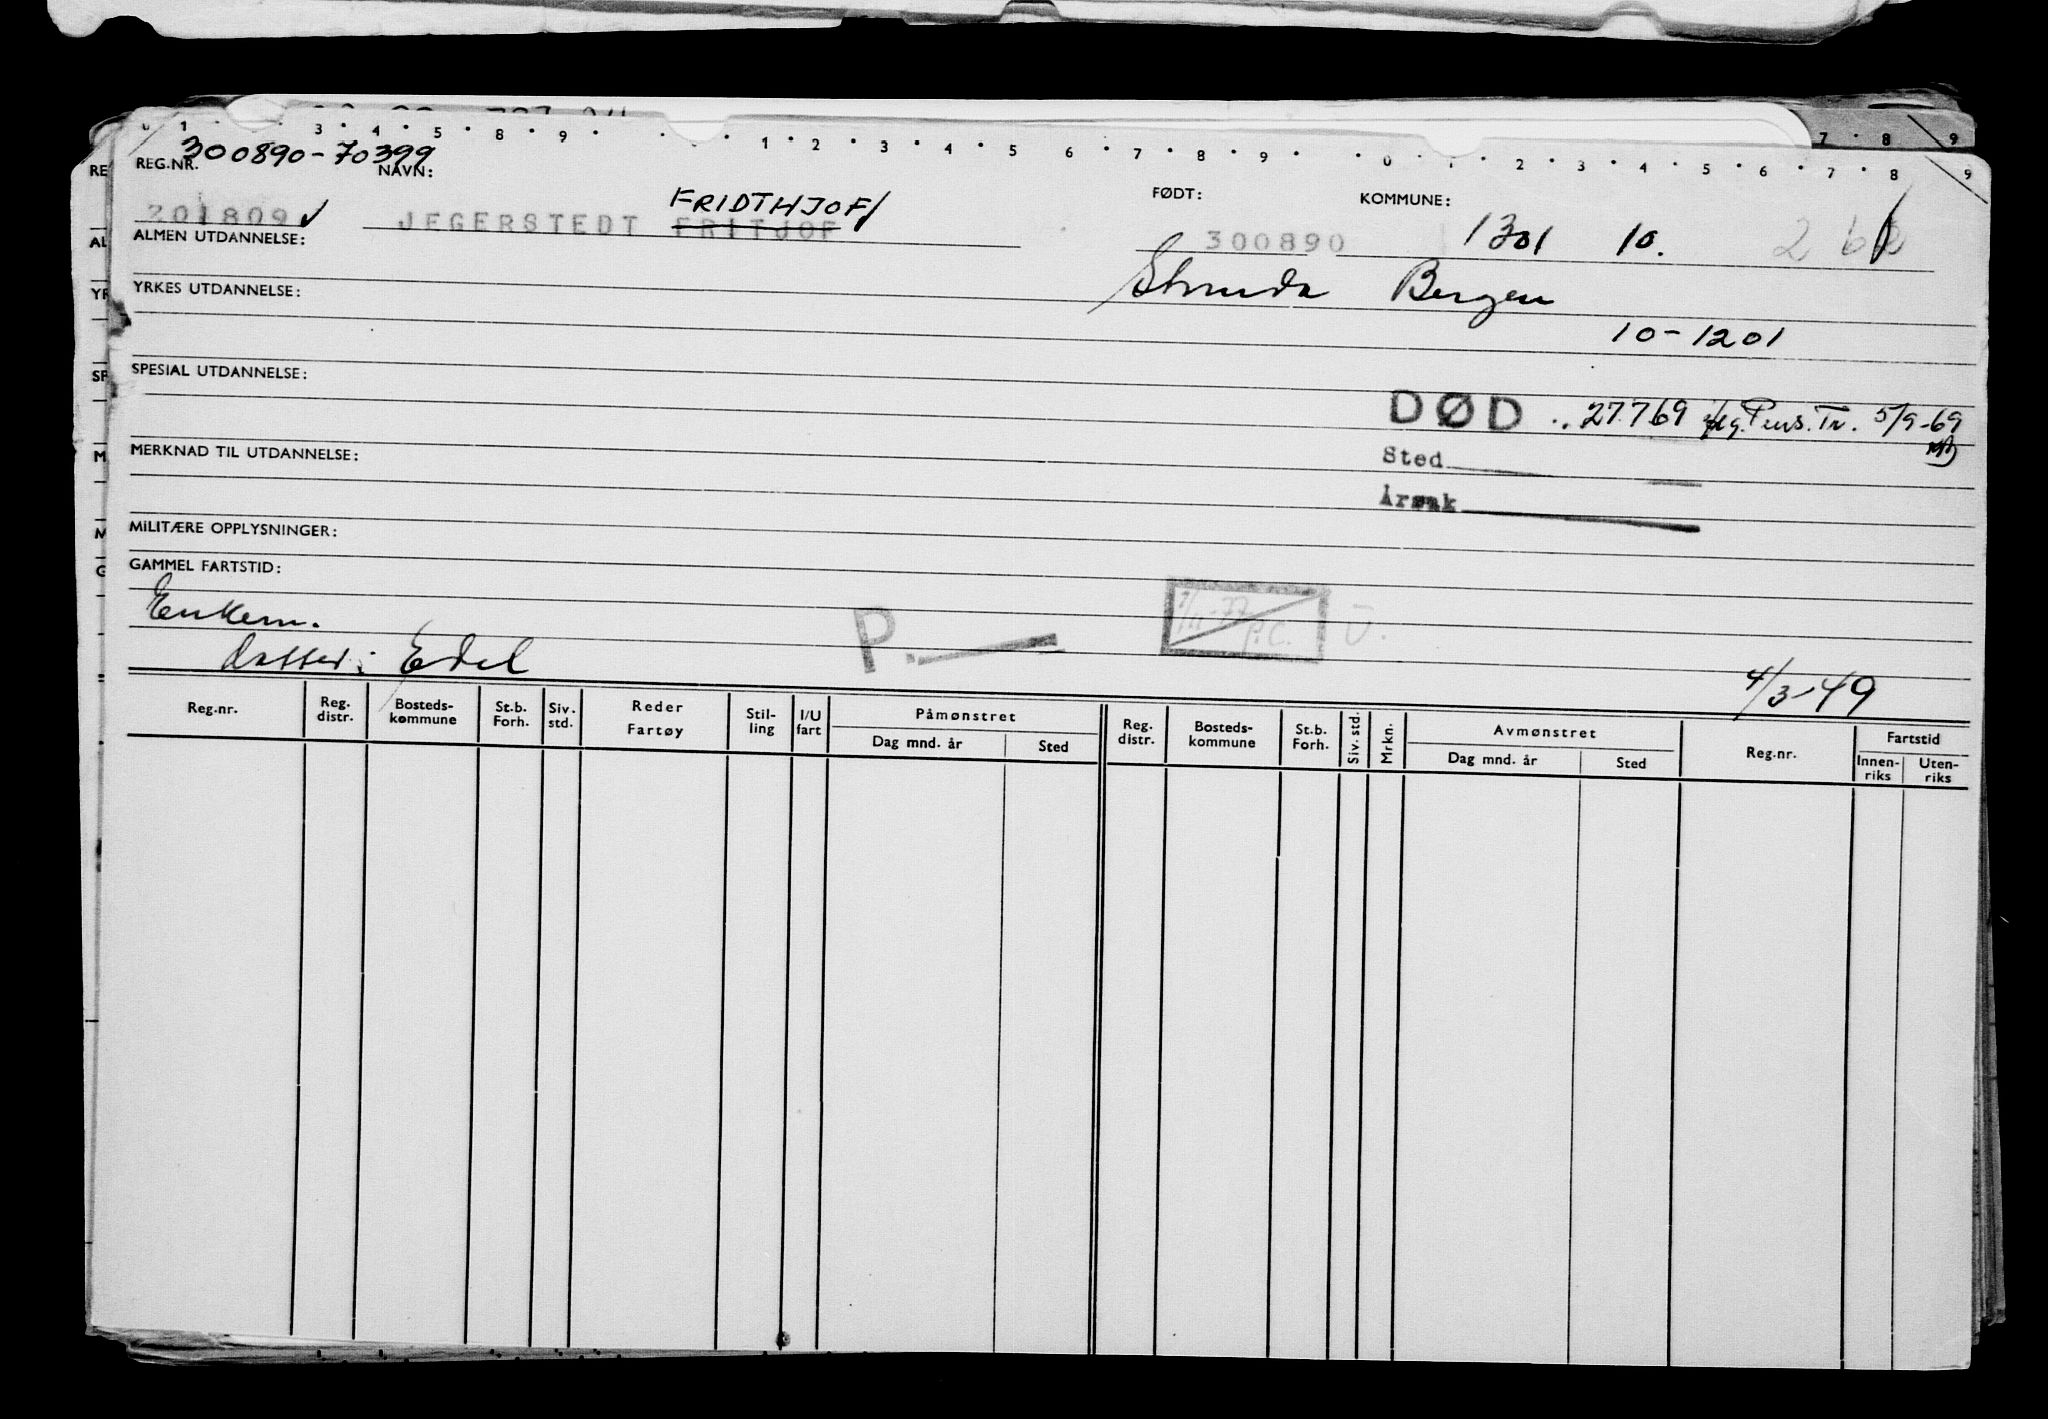 1 3 4 5 8 9 1 2 3 4 5 6 7 8 9 0 1 2 3 4 5 6 7 8 9
7 8 9
300890-70399
REG.NR. NAVN: FØDT: KOMMUNE:
FRIDTHJOF
201809 JEGERSTEDT FRITJOF 300890 1301 10.
ALMEN UTDANNELSE:
Strinda Bergen
YRKES UTDANNELSE:
10-1201
SPESIAL UTDANNELSE:
DØD .. 27769 iflg. Pens. Tr. 5/9-69
MERKNAD TIL UTDANNELSE:
Sted
Årsak
MILITÆRE OPPLYSNINGER:
GAMMEL FARTSTID:
Enkem.
datter: Edel
P.
1/11-77 P.C. U.
4/3-49
Reg.nr. Reg. distr. Bosteds-kommune St.b. Forh. Siv. std. Reder Fartøy Stil-ling I/U fart Påmønstret Dag mnd. år Sted Reg. distr. Bosteds-kommune St.b. Forh. Siv. std. Mrkn. Avmønstret Dag mnd. år Sted Reg.nr. Fartstid Innen-riks Uten-riks